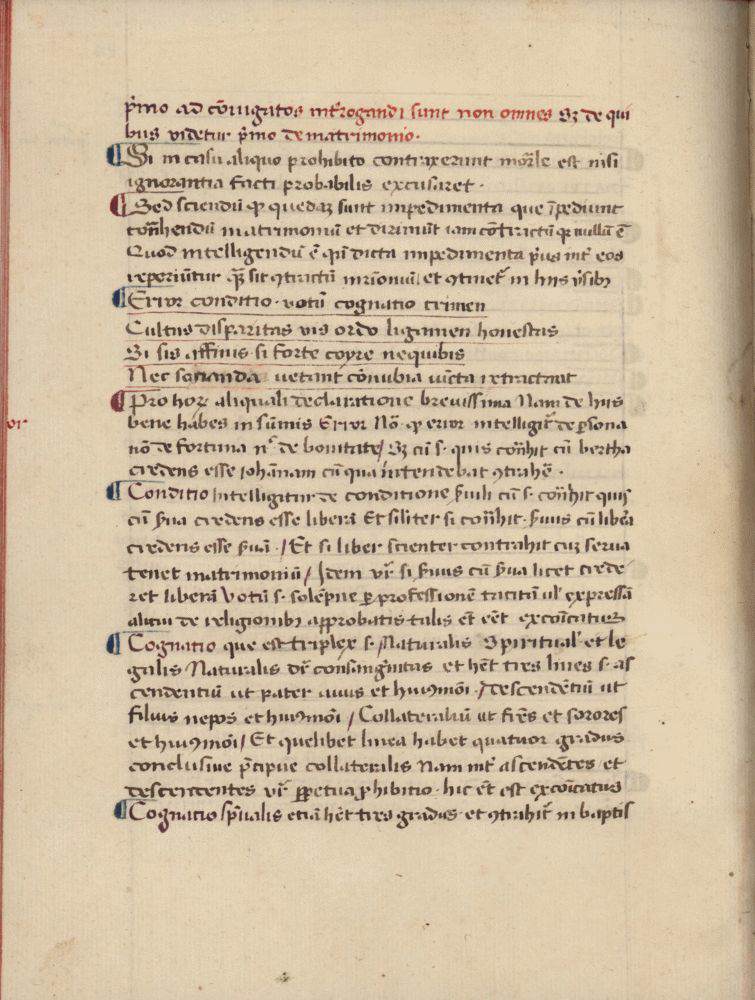 p̄mo ad cōiugatos int̄rogandi sunt non omnes Sz de qui
bus videtur p̄mo de matrimonio·
Si in casu aliquo prohibito contraxerunt mor̄le est nisi
ignorantia facti probabilis excusaret·
Sed sciendū ꝙ quedaz sunt impedimenta que īpediunt
cōn̄hendū matrimoniū et dirimūt iam cōtractū ꝙ nullū ē
Quod intelligendū ē qn̄ dicta impedimenta p̄us int̄ eos
reperiūtur qͣ sit ꝯtractū mr̄imoniū et ꝯtinet̄ in hiis v̄sibꝫ
Error conditio· votū cognatio crimen
Cultus disparitas vis ordo ligamen honestas
Si sis affinis si forte coyre nequibis
Nec socianda vetant cōnubia iūcta retractant
Pro hoꝝ aliquali declaratione brevissima Nam de hiis
bene habes in sūmis Error Nō· ꝙ error intelligit̄ de p̱sona
nō de fortuna nͨ de bonitate/ Sz cū s· quis cōn̄hit cū bertha
credens esse Johānam cū qua intendebat ꝯtrahē·
Conditio Intelligitur de conditione s̄uili cū s· cōn̄hit quis
cū s̄ua credens esse liberā Et siliter si cōn̄hit· s̄uus cū libera
credens esse s̄uā·/Et si liber scienter contrahit cuz serua
tenet matrimoniū/ Idem vr̄ si s̄uus cū s̄ua licet crede
ret liberā Votū s· solēpne ꝑ professionē tacitā ul̄ expressā
alicui de religionibꝫ approbatis talis et̄ eēt excōicatus
Cognatio que est triplex s· Naturalis Spiritual̄ et le
galis Naturalis dr̄ consang̃uitas et hēt tres lineas s· as
cendentiū ut pater auus et hiuꝯmōi·/descendētiū ut
filius nepos et hiuꝯmōi/Collateraliū ut fr̄es et sorores
et hiuꝯmōi/ Et quelibet linea habet quatuor gradus
conclusiue p̄cipue collateralis Nam int̄ ascendētes et
descendentes vr̄ ꝑpetua ꝓhibitio· hic et̄ est excōicatus
Cognatio sp̄ualis etiā hēt tres gradus· et ꝯtrahit̄ in baptis
or